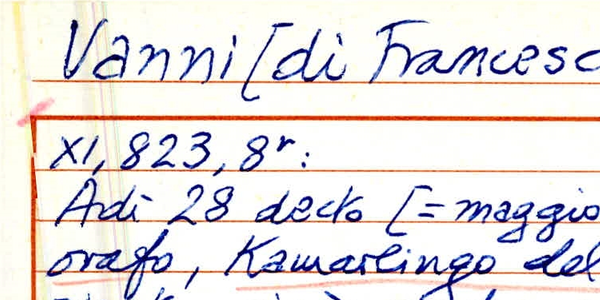 Vanni [di Francesc
XI, 823, 8r:
Adì 28 decto [= maggio
orafo, Kamarlingo del